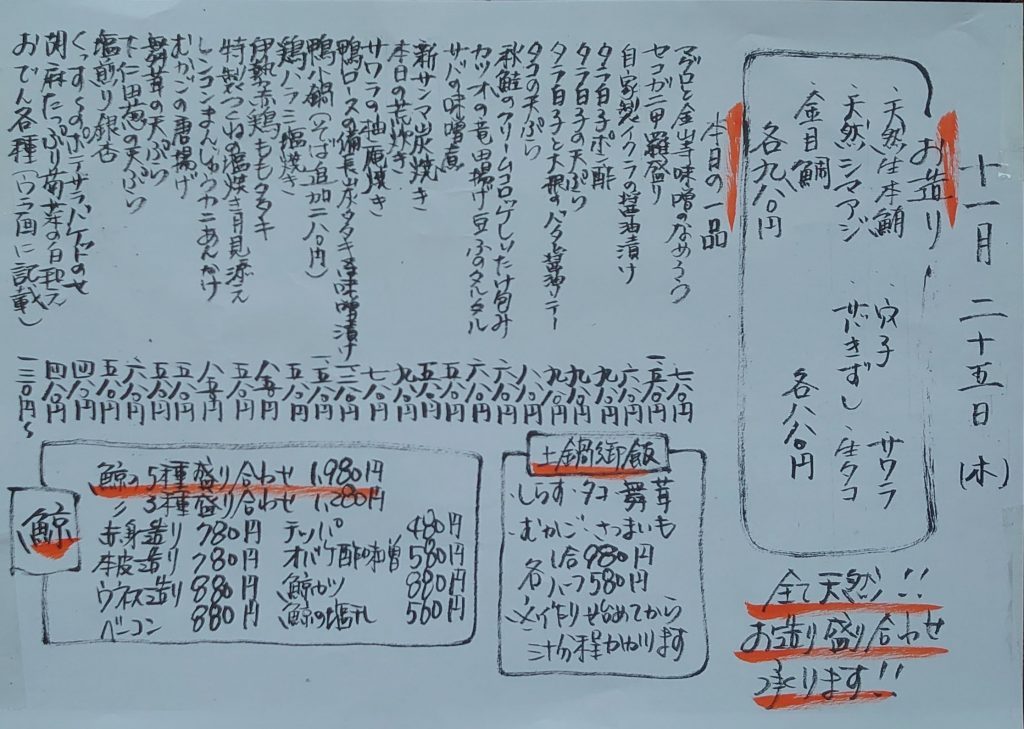 十一月二十五日(木)
お造り
・天然生本鮪 ・穴子 ・サワラ
・天然シマアジ ・きずし ・生タコ
・金目鯛 各八八〇円
各九八〇円
本日の一品
マグロと金山寺味噌のなめろう 七八〇円
セコガニ甲羅盛り 一、五八〇円
自家製イクラの醤油漬け 六八〇円
タラ白子ポン酢 九八〇円
タラ白子の天ぷら 九八〇円
タラ白子と大根のバタ醤油ソテー 九八〇円
タコの天ぷら 八八〇円
秋鮭のクリームコロッケしいたけ包み 六八〇円
カツオの竜田揚げ豆ふのタルタル 六八〇円
サバの味噌煮 五八〇円
新サンマ炭焼き
本日の荒炊き 五八〇円
サワラの柚庵焼き 九八〇円
鴨ロースの備長炭タタキ味噌漬け
鴨小鍋(そば追加二八〇円)
鶏ハラミ塩焼き
伊勢赤鶏ももタタキ
特製つくねの塩焼き月見添え
レンコンまんじゅうカニあんかけ
むかごの唐揚げ 五八〇円
舞茸の天ぷら 五八〇円
下仁田葱の天ぷら 六八〇円
塩煎り銀杏 五八〇円
ポテサラバケットのせ 四八〇円
胡麻たっぷり菊菜の白和え 四八〇円
おでん各種(ウラ面に記載) 一三〇円〜
土鍋御飯
・しらす・タコ・舞茸
・むかご・さつまいも
各 1合 980円
ハーフ 580円
※作り始めてから
三十分程かかります
鯨
鯨の5種盛り合わせ 1,980円
〃 3種盛り合わせ 1,280円
赤身造り 780円 テッパ 480円
本皮造り 780円 オバケ酢味噌 580円
ウネス造り 880円 鯨カツ 880円
ベーコン 880円 鯨の塩孔 560円
全て天然!!
お造り盛り合わせ
承ります!!